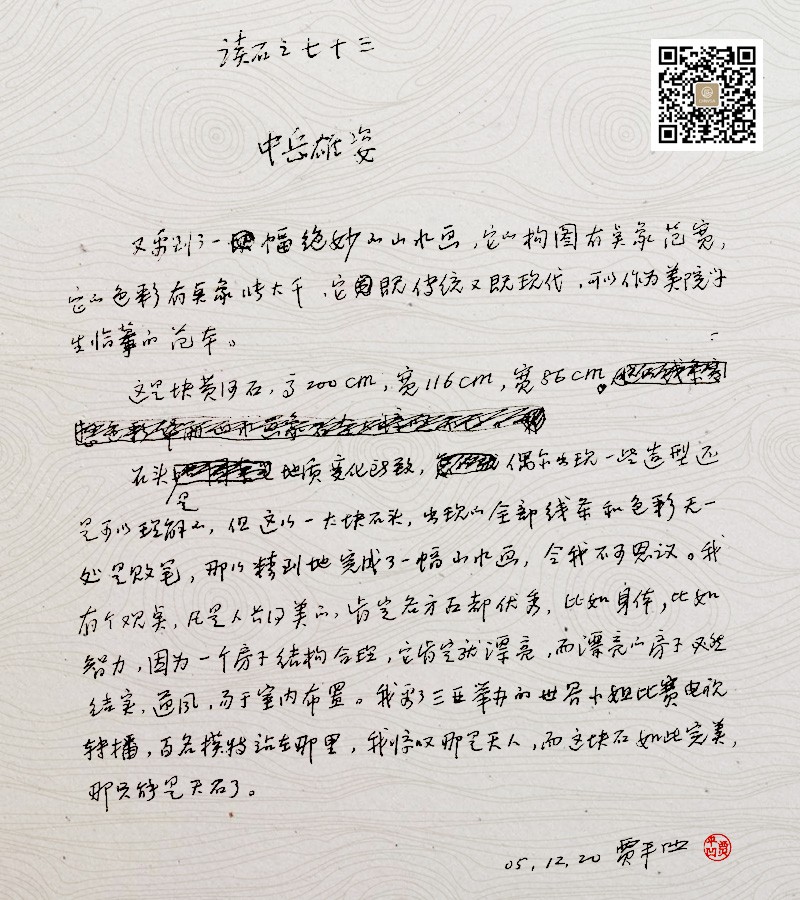 读石之七十三
中岳雄姿
又看到了一幅绝妙的山水画，它的构图有点象范宽，
它的色彩有点象张大千，它既传统又既现代，可以作为美院学
生临摹的范本。
这是块黄河石，高200cm，宽116cm，宽86cm。
石头是地质变化所致，偶尔出现一些造型还
是可以理解的，但这么一大块石头，出现的全部线条和色彩无一
处是败笔，那么精到地完成了一幅山水画，令我不可思议。我
有个观点，凡是人长得美的，肯定各方面都优秀，比如身体，比如
智力，因为一个房子结构合理，它肯定就漂亮，而漂亮的房子必然
结实，通风，易于室内布置。我看了三亚举办的世界小姐比赛电视
转播，百名模特站在那里，我惊叹那是天人，而这块石如此完美，
那只能是天石了。
05.12.20 贾平凹
贾平凹